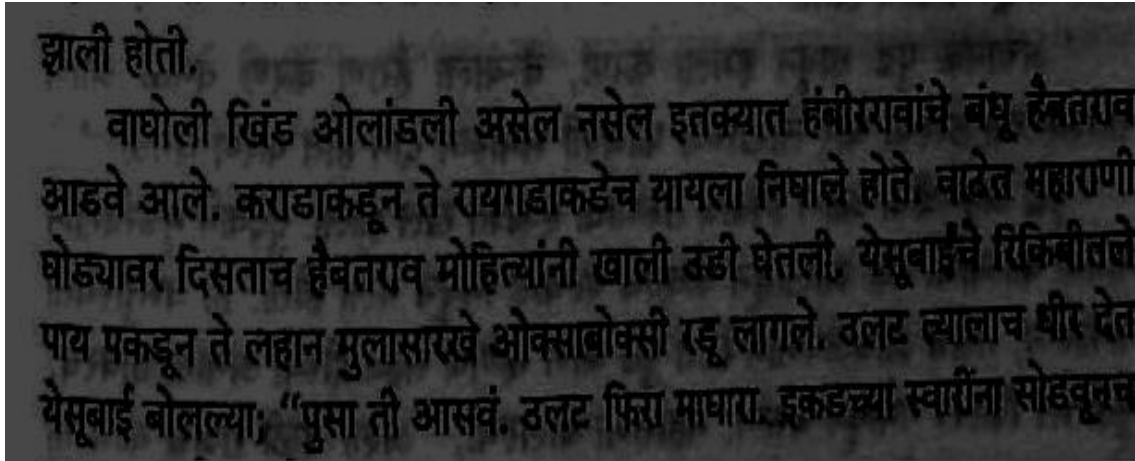 झाली होती.
वाघोली खिंड ओलांडली असेल नसेल इतक्यात हंबीररावांचे बंधू हैबतराव
आडवे आले. कराडाकडून ते रायगडाकडेच यायला निघाले होते. वाटेत महाराणी
घोड्यावर दिसताच हैबतराव मोहित्यांनी खाली उडी घेतली. येसूबाईंचे रिकिबीतले
पाय पकडून ते लहान मुलासारखे ओक्साबोक्सी रडू लागले. उलट त्यालाच धीर देत
येसूबाई बोलल्या; “पुसा ती आसवं. उलट फिरा माघारा. इकडच्या स्वारींना सोडवूनच